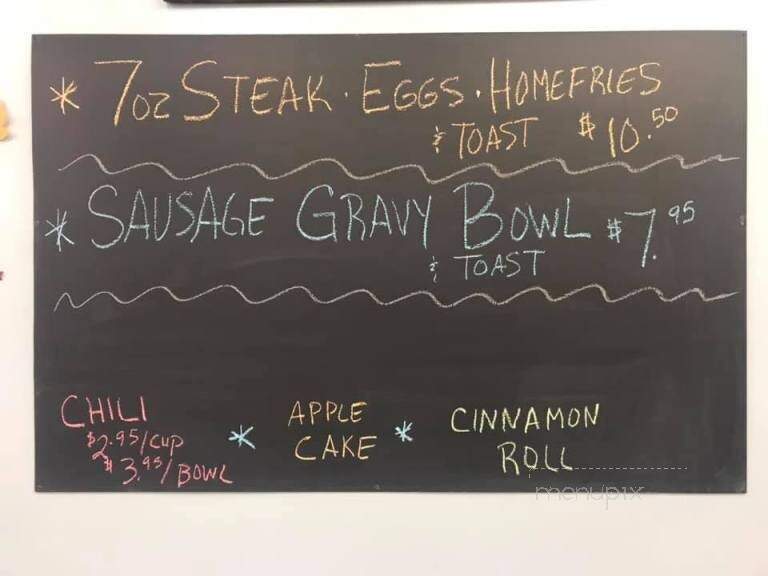 * 7oz STEAK · EGGS · HOMEFRIES
& TOAST $10.50
* SAUSAGE GRAVY BOWL $7.95
& TOAST
CHILI
$2.95/CUP
$3.95/BOWL
*
APPLE
CAKE
*
CINNAMON
ROLL
menupix